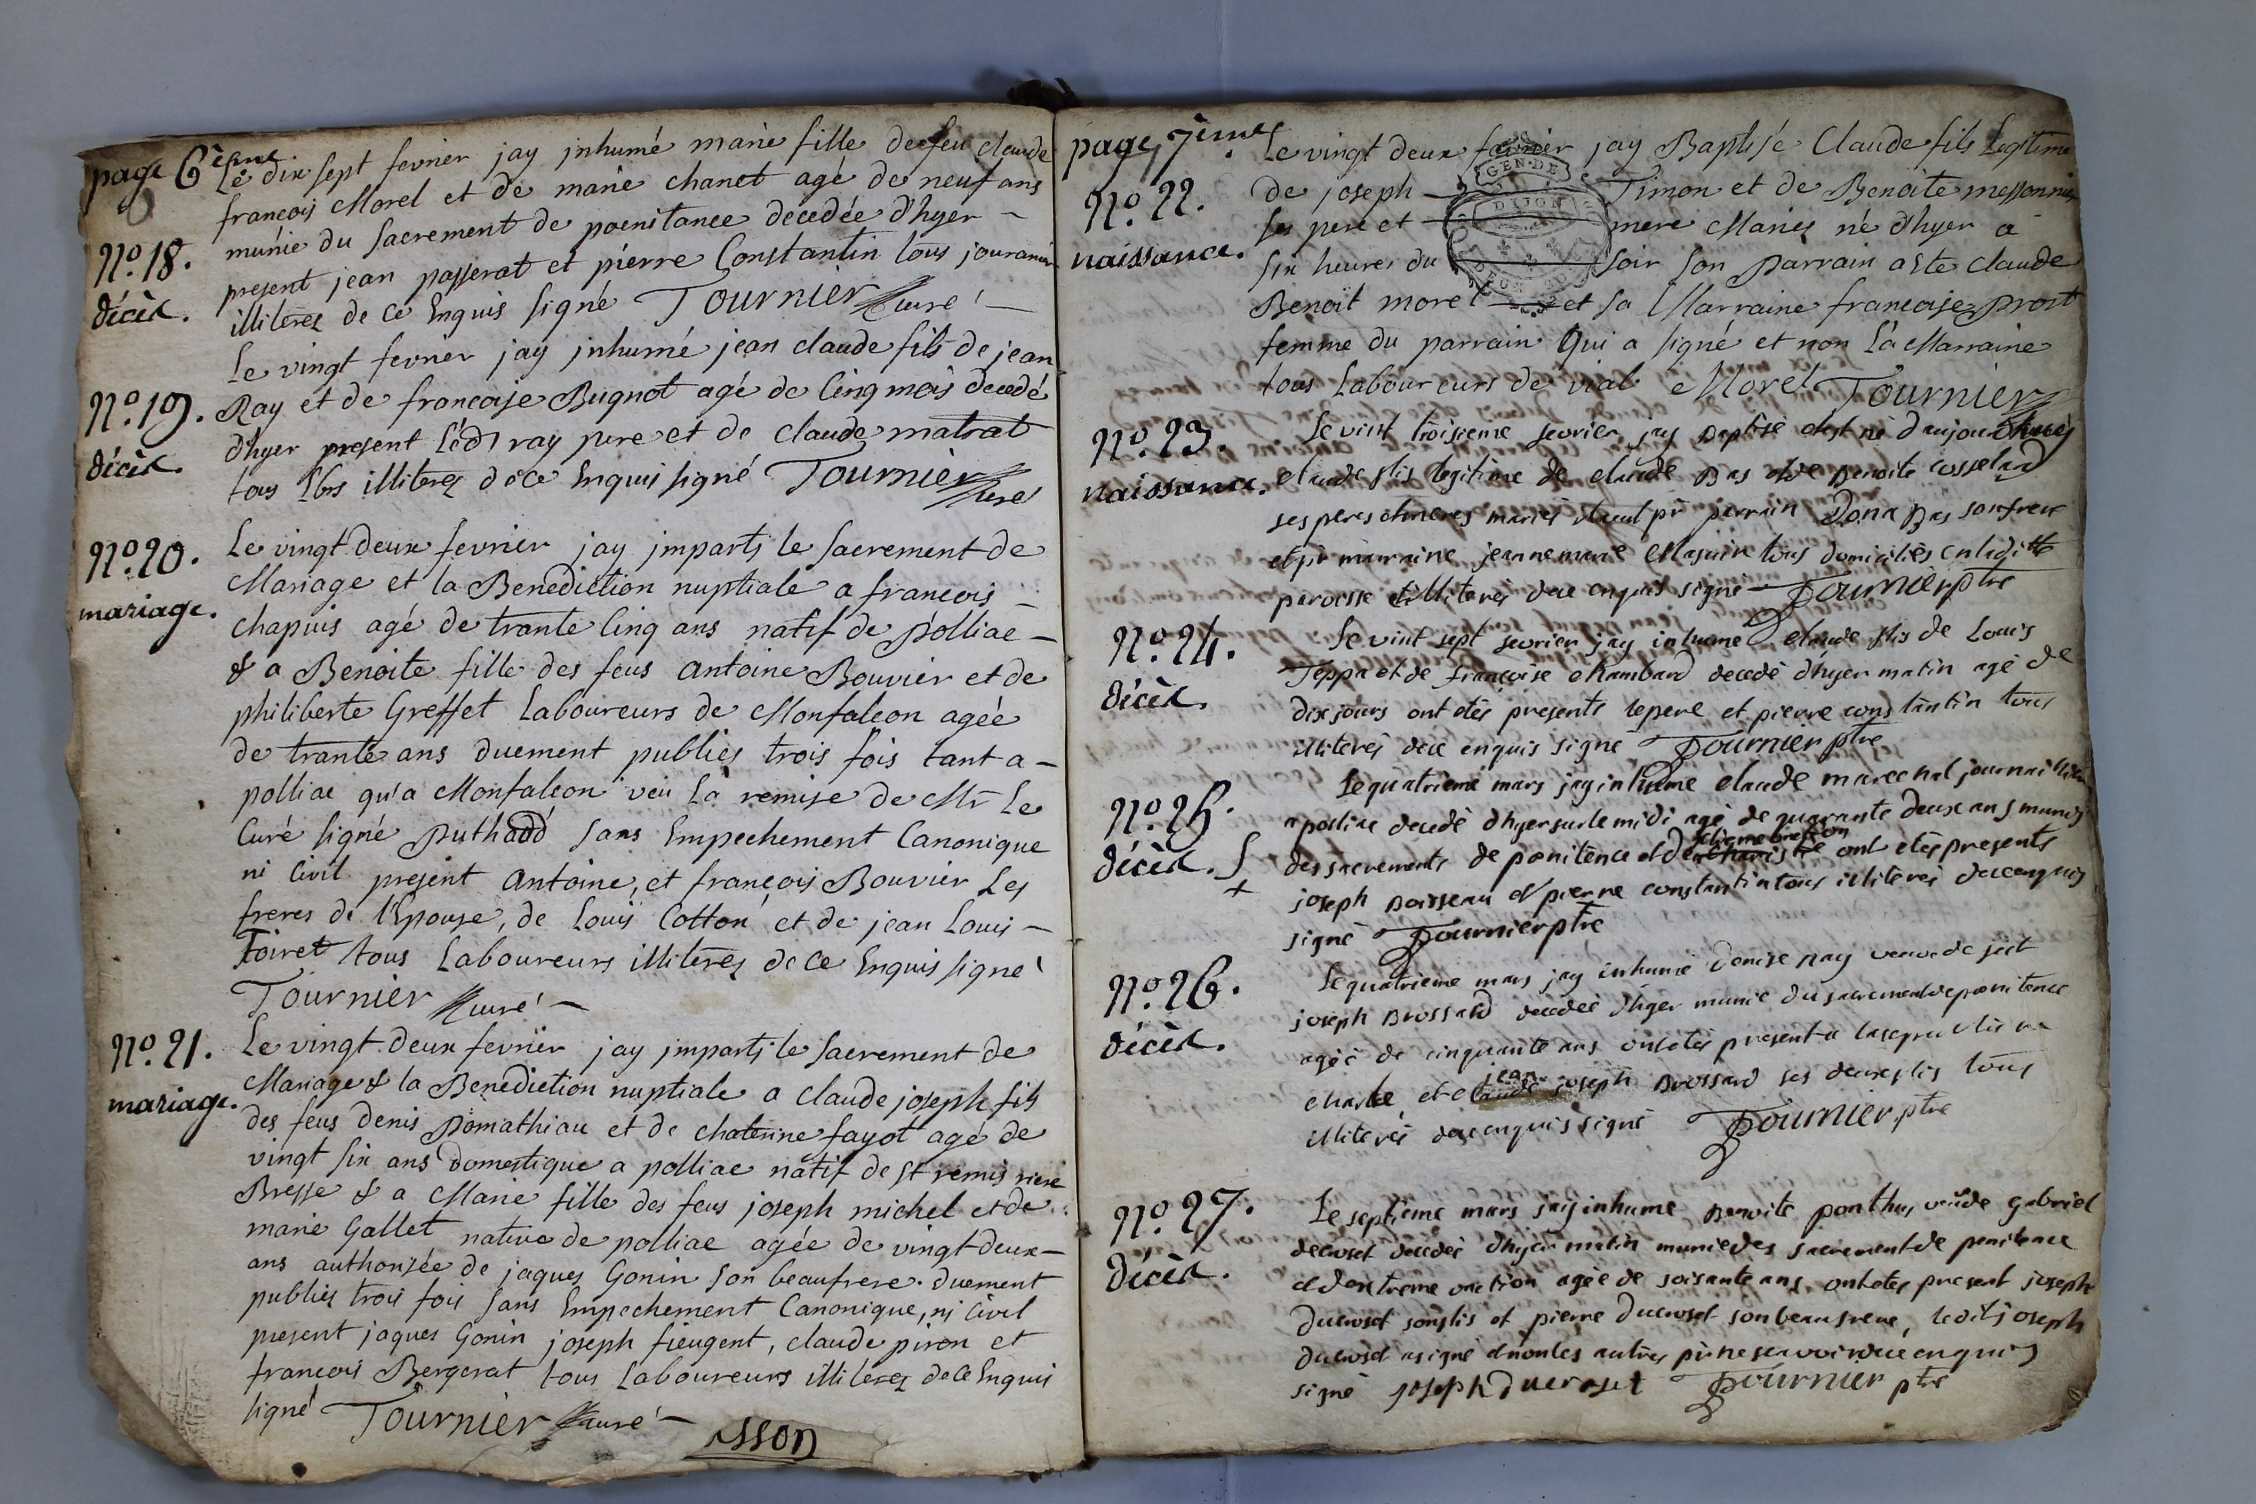 page 6ème
Le dix sept fevrier jay jnhumé marie fille de feu claude
francois Morel et de marie chanet agé de neuf ans
munie du sacrement de poenitance decedée d'hyer
No. 18.
décèd.
present jean passerat et pierre Constantin tous
illiterez de ce Enquis signé Tournier curé
Le vingt fevrier jay jnhumé jean claude fils de jean
No. 19.
décèd.
Ray et de francoise Bugnot agé de Cinq mois decedé
d'hyer present Ledt ray pere et de claude matrat
tous illiterez de ce Enquis signé Tournier curé
No. 20.
mariage.
Le vingt deux fevrier jay jmparti le sacrement de
Mariage et la Benediction nuptiale a francois
chapuis agé de trante Cinq ans natif de polliac
& a Benoite fille des feus antoine Bouvier et de
philiberte Greffet Laboureurs de Monfalcon agée
de trante ans duement publiés trois fois tant a
polliac qu'a Monfalcon veu la remise de Mr Le
Curé signé sans Empechement Canonique
ni Civil present antoine, et francois Bouvier Les
freres de l'Epouse, de Louis Cotton et de jean Louis
Foiret tous Laboureurs illiterez de ce Enquis signé
Tournier curé
No. 21.
mariage.
Le vingt deux fevrier jay jmparti le sacrement de
Mariage & la Benediction nuptiale a claude joseph fils
des feus denis pomathiau et de chaterine fayot agé de
vingt six ans domestique a polliac natif de st remis
Bresse & a Marie fille des feus joseph michel et de
marie Gallet native de polliac agée de vingt deux
ans authorisée de jaques Gonin son beaufrere. duement
publiés trois fois sans Empechement Canonique, ni Civil
present jaques Gonin joseph fieugent, claude piron et
francois Bergerat tous Laboureurs illiterez de ce Enquis
signé Tournier curé
page 7ème
No. 22.
naissance.
Le vingt deux fevrier jay Baptisé Claude fils Legitime
de joseph Timon et de Benoite
ses pere et mere Mariés né d'hyer a
six heures du soir son parrain a ete claude
Benoit morel et sa Marraine francoise prost
femme du parrain Qui a signé et non La Marraine
tous Laboureurs de vial Morel Tournier
GEN. DE
DIJON
No. 23.
naissance.
Le vint troisieme fevrier jay Baptisé et né
claude fils legitime de claude Bas et de Benoite
ses peres et meres mariés parrain Bas son frere
et pr marraine jeanne marie tous domiciliés
paroisse et illiterés de ce enquis signé Tournier ptre
No. 24.
décèd.
Le vint sept fevrier jay inhumé claude fils de Louis
Teppa et de françoise chambard decedé d'hyer matin agé de
dix jours ont étés presents le pere et pierre constantin tous
illiterés de ce enquis signé Tournier ptre
No. 25.
décèd.
Le quatrieme mars jay inhumé claude marechal
a polliac decedé d'hyer sur le midi agé de quarante deux ans muni
des sacrements de penitence et ont étés presents
joseph Boisseau et pierre constantin tous illiterés de ce enquis
signé Tournier ptre
No. 26.
décèd.
Le quatrieme mars jay inhumé Denise Ray veuve de
joseph Brossard decedée d'hyer munie du sacrement de poenitence
agée de cinquante ans ont étés present a la sepulture
charle et jean joseph Brossard ses deux fils tous
illiterés de ce enquis signé Tournier ptre
No. 27.
décèd.
Le septieme mars jay inhumé Benoite ponthus de Gabriel
ducroset decedée d'hyer matin munie des sacrement de penitence
et d'extreme onction agée de soisante ans ont étés present joseph
ducroset son fils et pierre ducroset son beau frere, le dit joseph
ducroset a signé et non les autres pr ne scavoir de ce enquis
signé joseph ducroset Tournier ptre